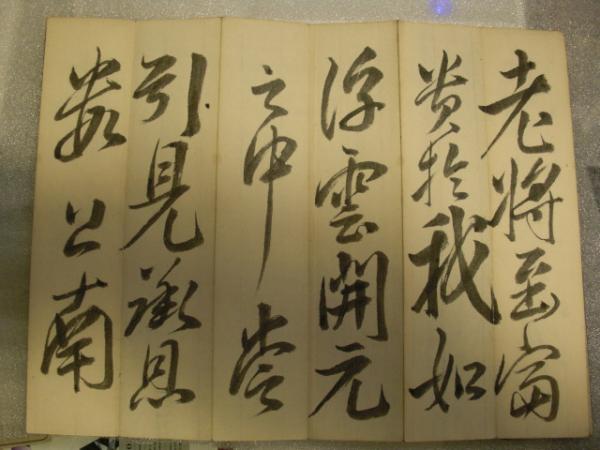 老將至富
貴於我如
浮雲開元
之中常
引見承恩
數上南